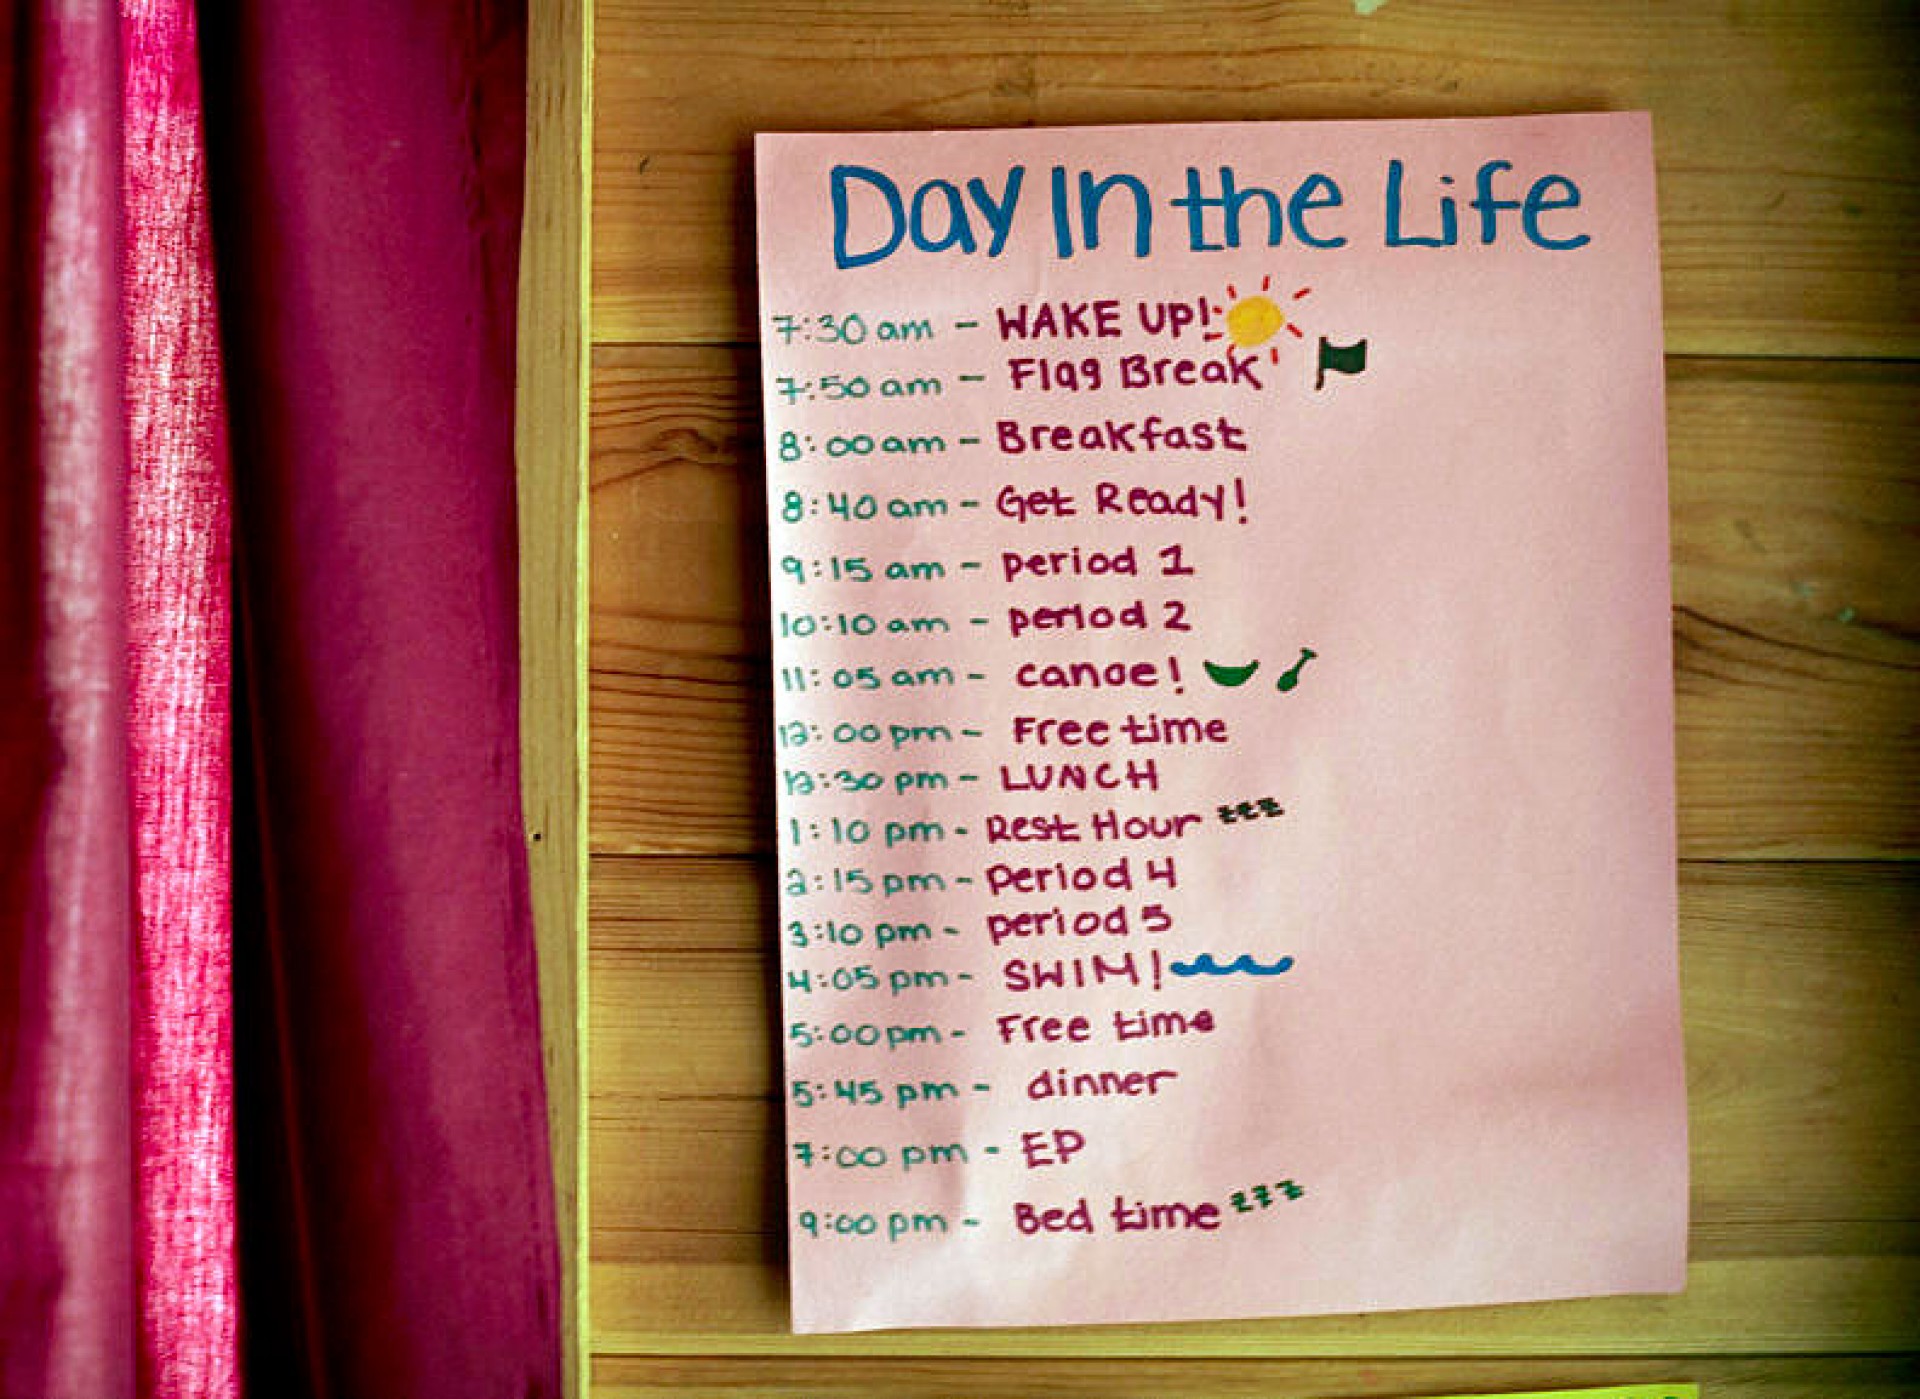 Day In the Life
7:30 am - WAKE UP!
7:50 am - Flag Break
8:00 am - Breakfast
8:40 am - Get Ready!
9:15 am - period 1
10:10 am - period 2
11:05 am - canoe!
12:00 pm - Free time
12:30 pm - LUNCH
1:10 pm - Rest Hour zzz
2:15 pm - period 4
3:10 pm - period 5
4:05 pm - SWIM!
5:00 pm - Free time
5:45 pm - dinner
7:00 pm - EP
9:00 pm - Bed time zzz